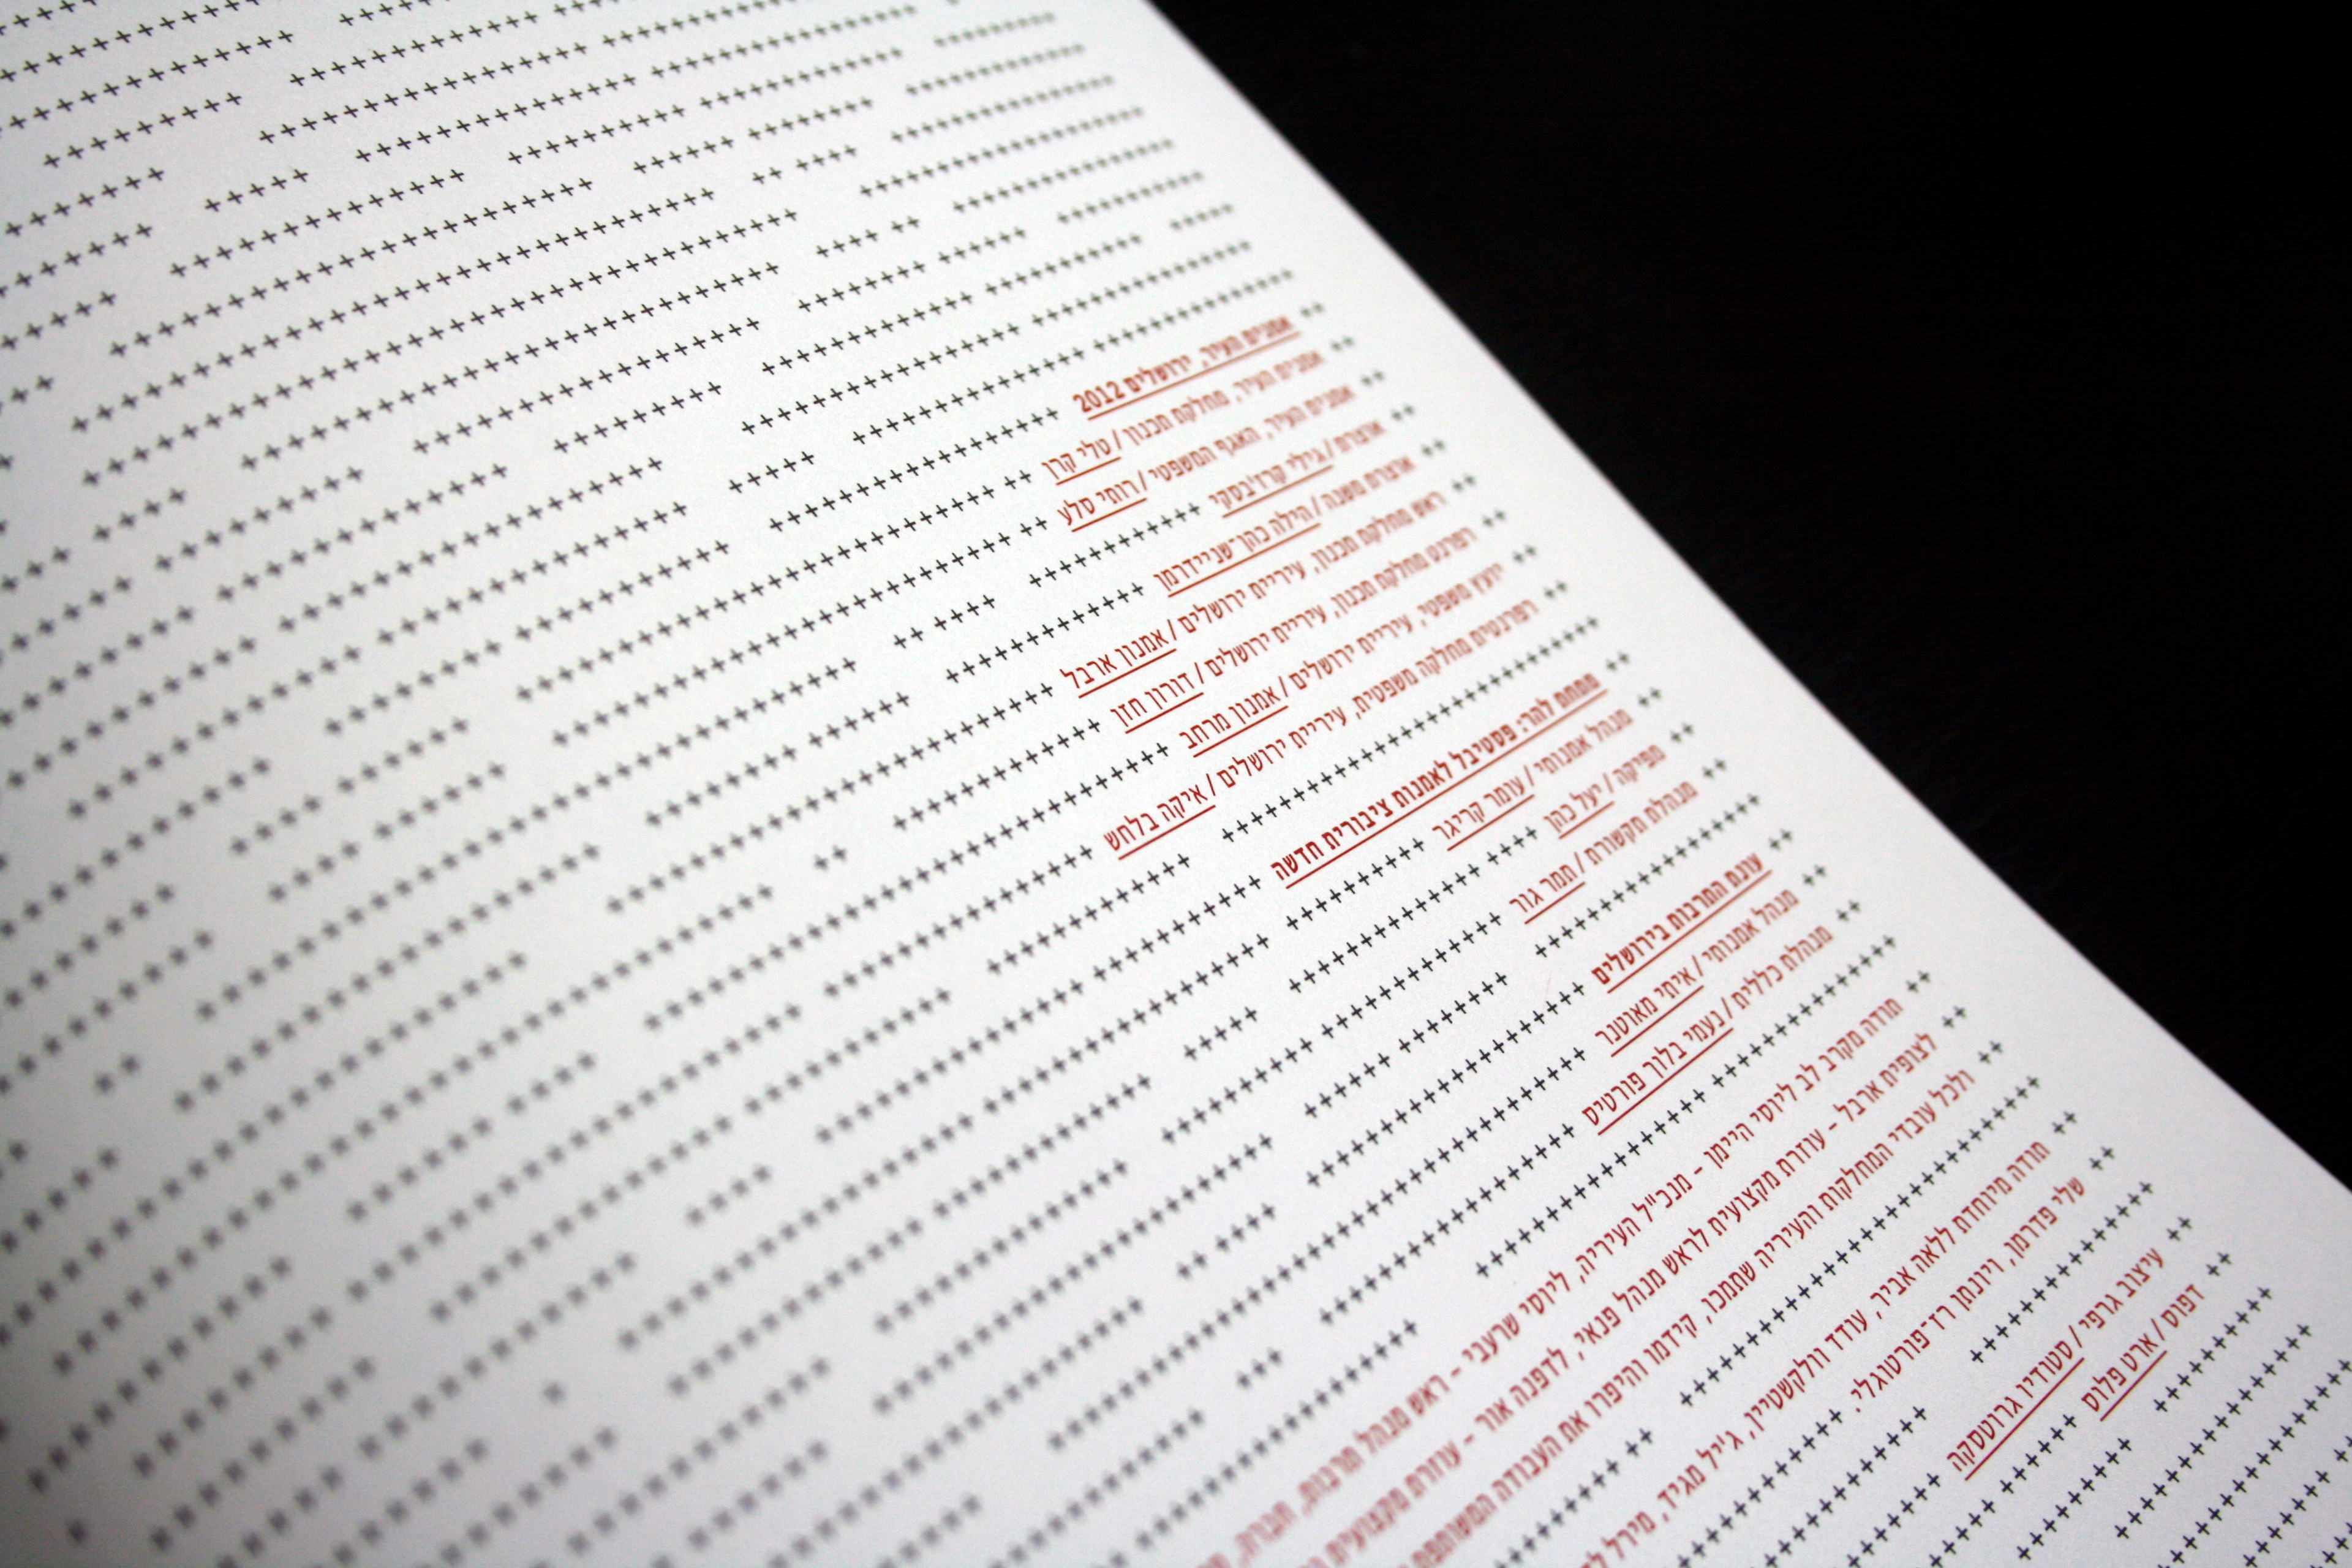 אמנים העיר, ירושלים 2012
אמנים העיר, מחלקת תכנון / טלי קרן
אמנים העיר, האגף המשפטי / רותי סלע
אוצרת / גילי קרז'בסקי
אוצרת משנה / הילה כהן־שניידרמן
ראש מחלקת תכנון, עיריית ירושלים / אמנון ארבל
רפרנט מחלקת תכנון, עיריית ירושלים / דורון חזן
יועץ משפטי, עיריית ירושלים / אמנון מרחב
רפרנטית מחלקה משפטית, עיריית ירושלים / איקה בלחש
מתחת להר: פסטיבל לאמנות ציבורית חדשה
מנהל אמנותי / עומר קריגר
מפיקה / יעל כהן
מנהלת תקשורת / תמר גור
עונת התרבות בירושלים
מנהל אמנותי / איתי מאוטנר
מנהלת כללית / נעמי בלוך פורטיס
תודה מקרב לב ליוסי היימן – מנכ"ל העירייה, ליוסי שרעבי – ראש מנהל תרבות, חברה,
לצופית ארבל – עוזרת מקצועית לראש מנהל פנאי, לדפנה אור – עוזרת מקצועית
ולכל עובדי המחלקות והעירייה שתמכו, קידמו והיפרו את העבודה המשותפת
תודה מיוחדת ללאה אביר, עודד וולקשטיין, ג'ייל מגיד, מירל
שלי פדרמן, ויונתן רז־פורטוגלי.
עיצוב גרפי / סטודיו גרוטסקה
דפוס / ארט פלוס